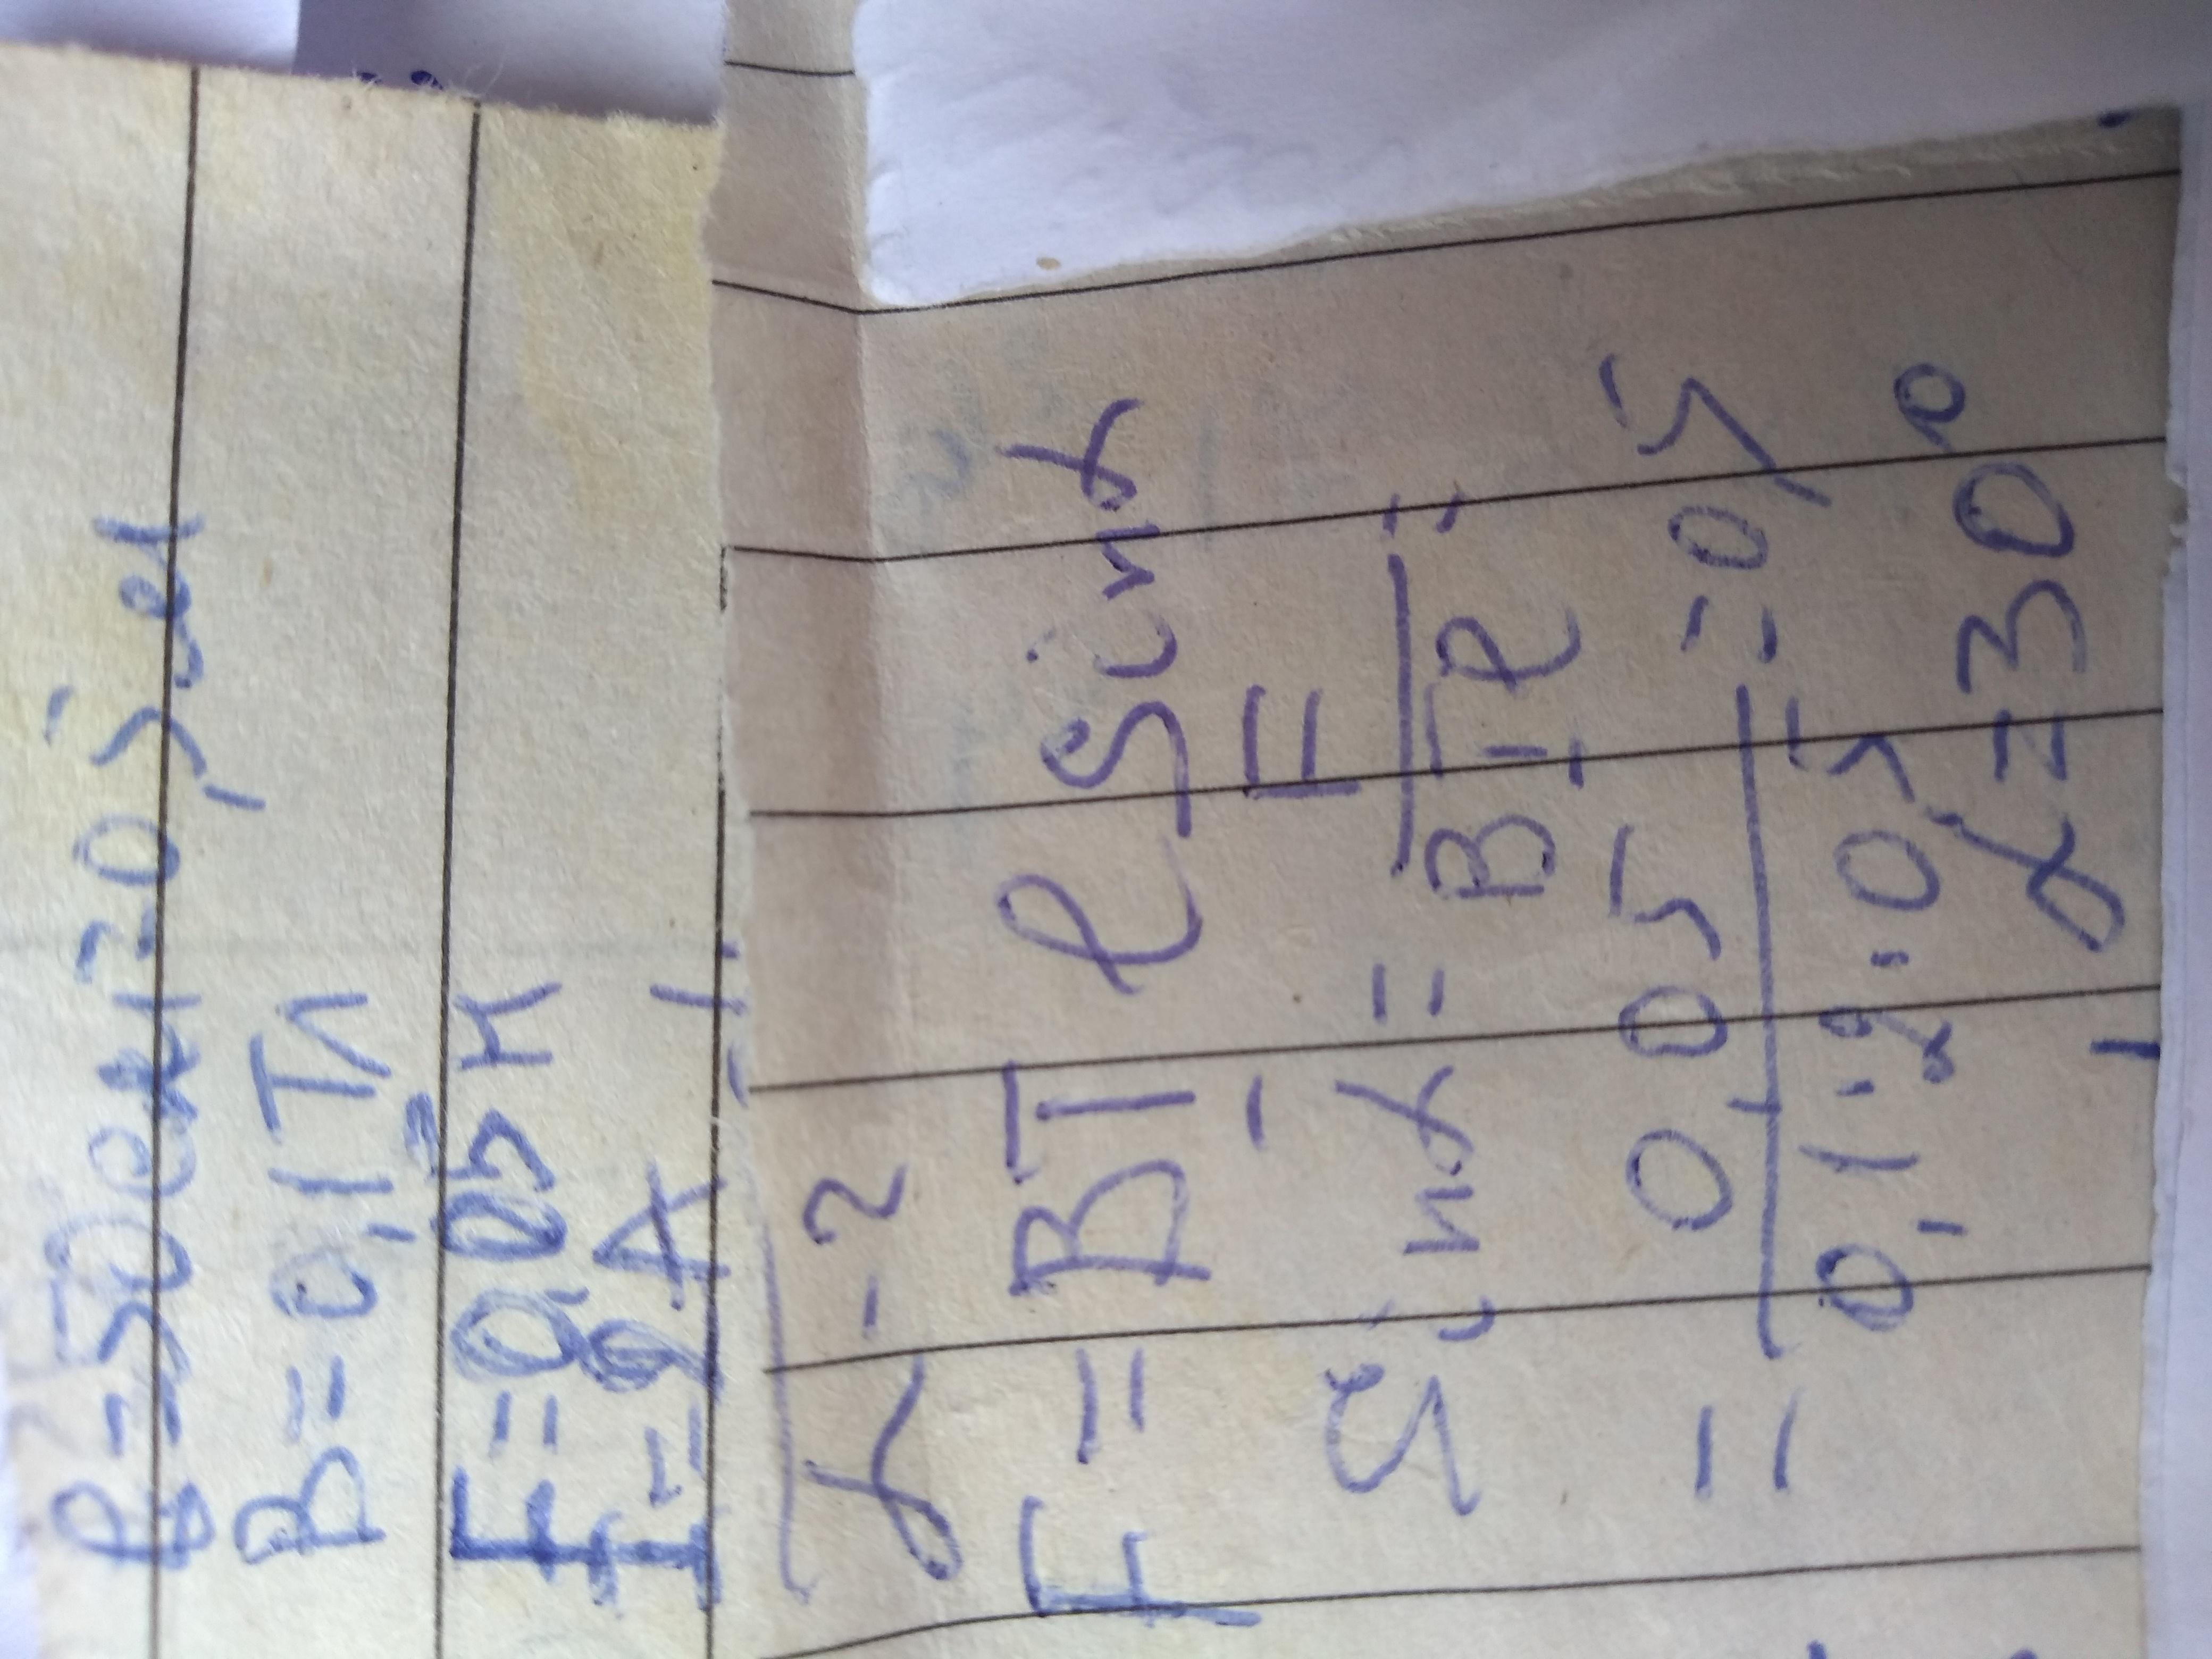 ℓ=50см=0,5м
B=0,1Тл
F=0,05Н
I=2А
α-?
F=BIℓ Sinα
Sinα = F/BIℓ =
= 0,05/0,1·2·0,5 =0,5
α=30°